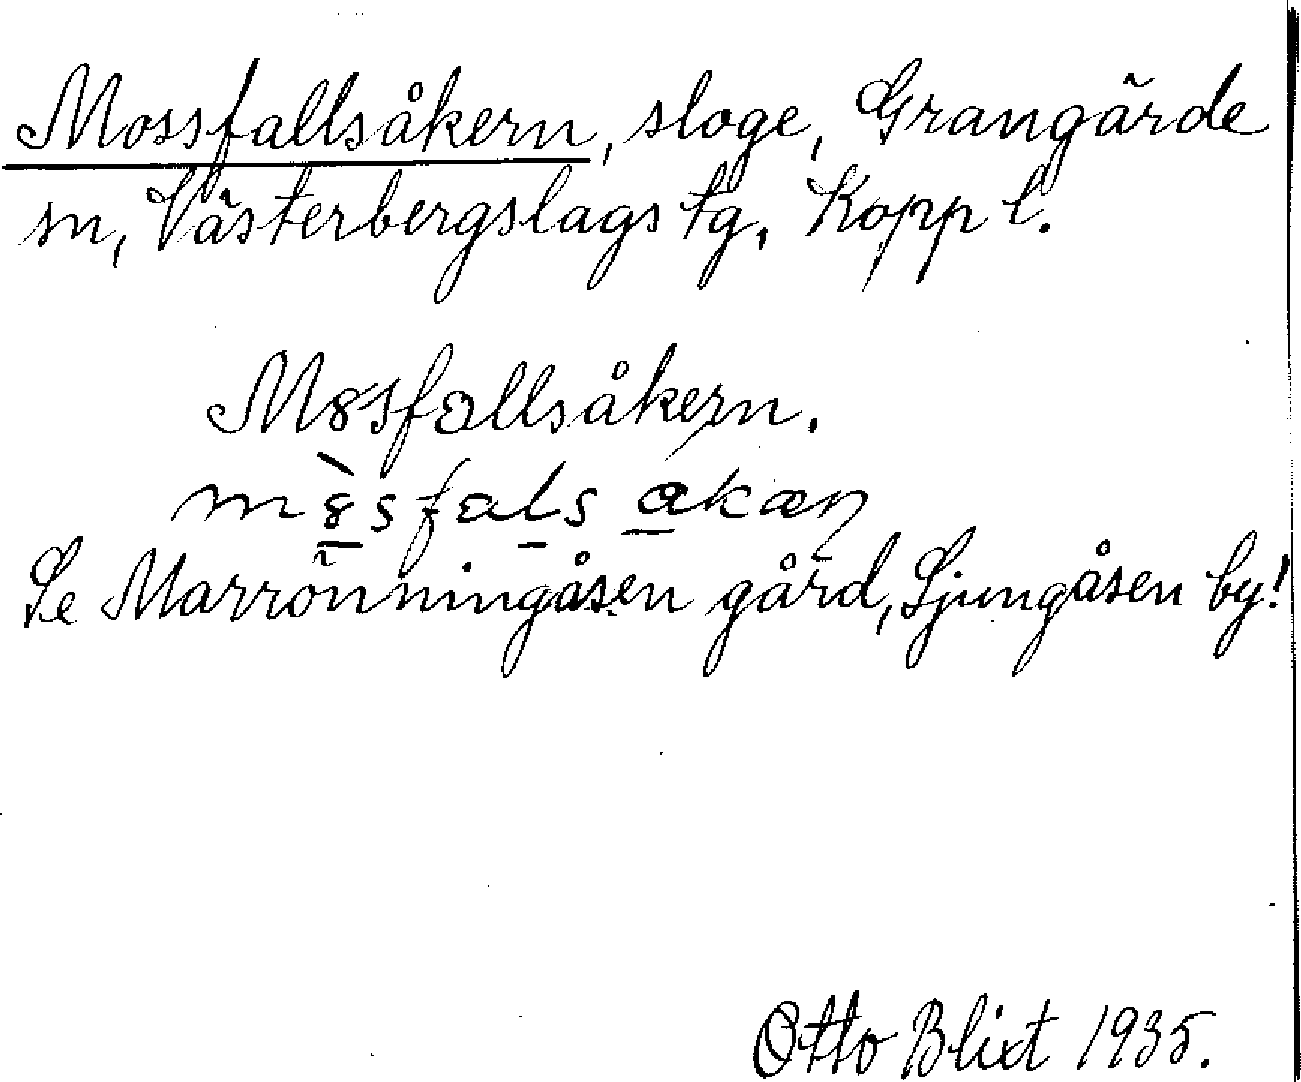 Mossfallsåkern, sloge, Grangärde
sn, Västerbergslags tg, Kopp l.
Mȣsfallsåkern.
mȣ̀sfals akæn
Se Marrönningåsen gård, Ljungåsen by!
Otto Blixt 1935.